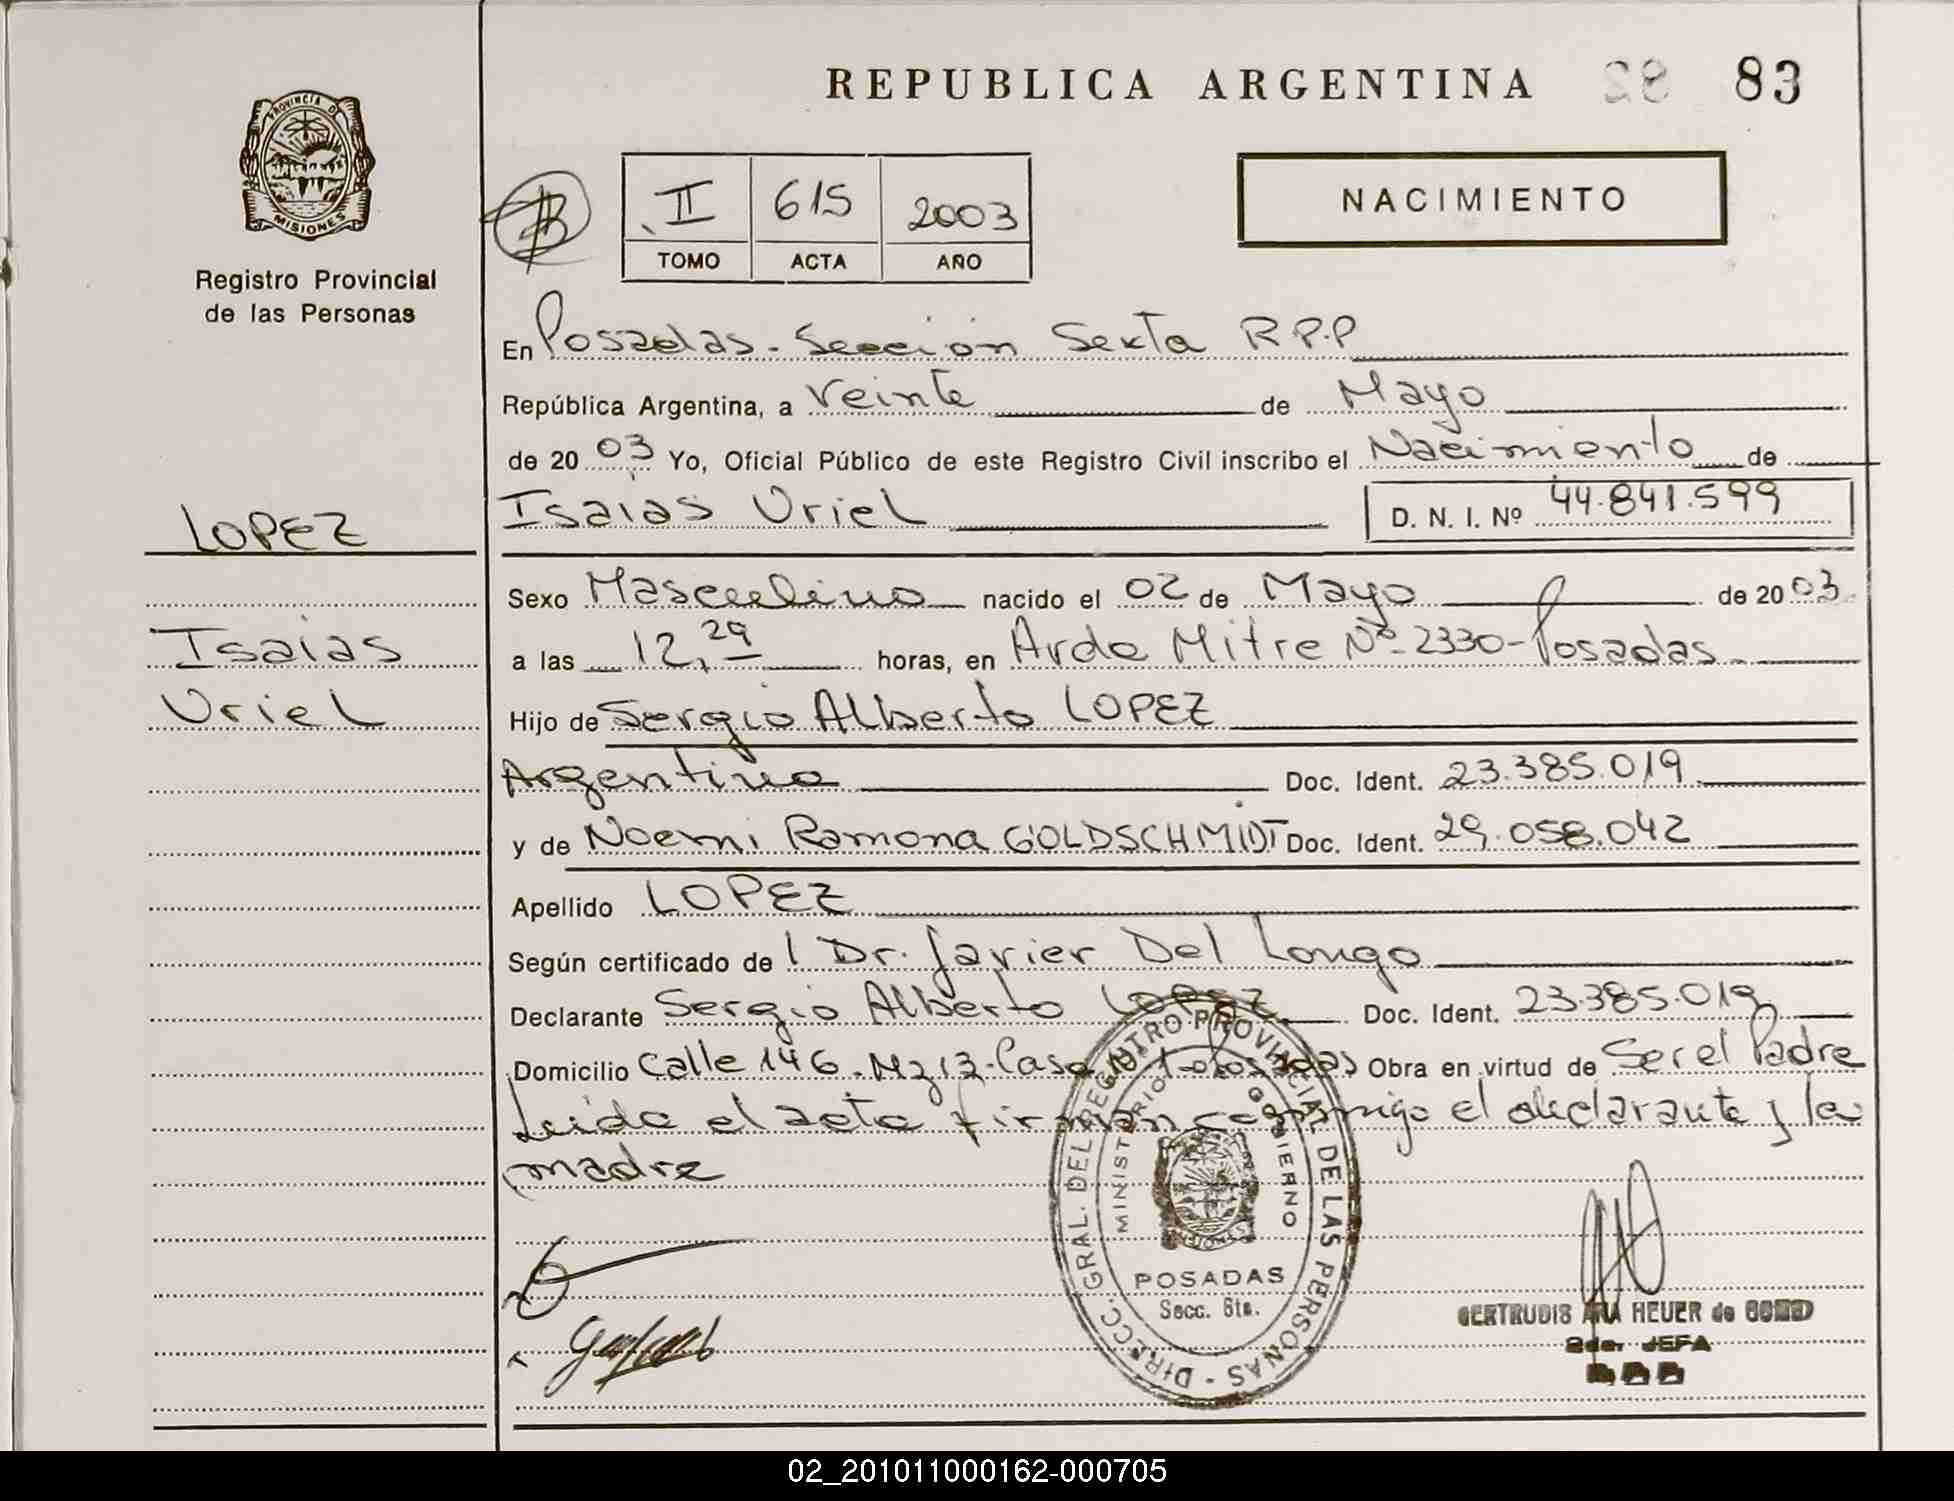 REPUBLICA ARGENTINA 83
PROVINCIA DE
MISIONES
Registro Provincial
de las Personas
II 615 2003
TOMO ACTA AÑO
NACIMIENTO
En Posadas - Sección Sexta R.P.P
República Argentina, a Veinte de Mayo
de 20 03 Yo, Oficial Público de este Registro Civil inscribo el Nacimiento de
Isaias Uriel D. N. I. Nº 44.841.599
LOPEZ
Isaias
Uriel
Sexo Masculino nacido el 02 de Mayo de 20 03
a las 12,29 horas, en Avda Mitre Nº 2330-Posadas
Hijo de Sergio Alberto LOPEZ
Argentino Doc. Ident. 23.385.019
y de Noemi Ramona GOLDSCHMIDT Doc. Ident. 29.058.042
Apellido LOPEZ
Según certificado de l Dr. Javier Del Longo
Declarante Sergio Alberto LOPEZ Doc. Ident. 23.385.019
Domicilio Calle 146. Mz 13-Casa Posadas Obra en virtud de Ser el Padre
Leida el acta firman conmigo el declarante y la
madre
DIRECC. GRAL. DEL REGISTRO PROVINCIAL DE LAS PERSONAS -
MINISTERIO GOBIERNO
MISIONES
POSADAS
Secc. 6ta.
GERTRUDIS ANA HEUER de
2da. JEFA
02_201011000162-000705